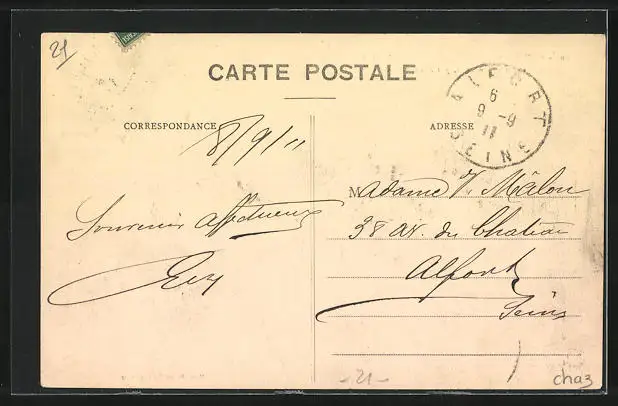 21
CARTE POSTALE
CORRESPONDANCE
8/9/11
Souvenir affectueux
ADRESSE
ALFORT
6
9 -9
11
SEINE
Madame V. Mâlon
38 av. du Chateau
Alfort
Seine
-21-
chaz